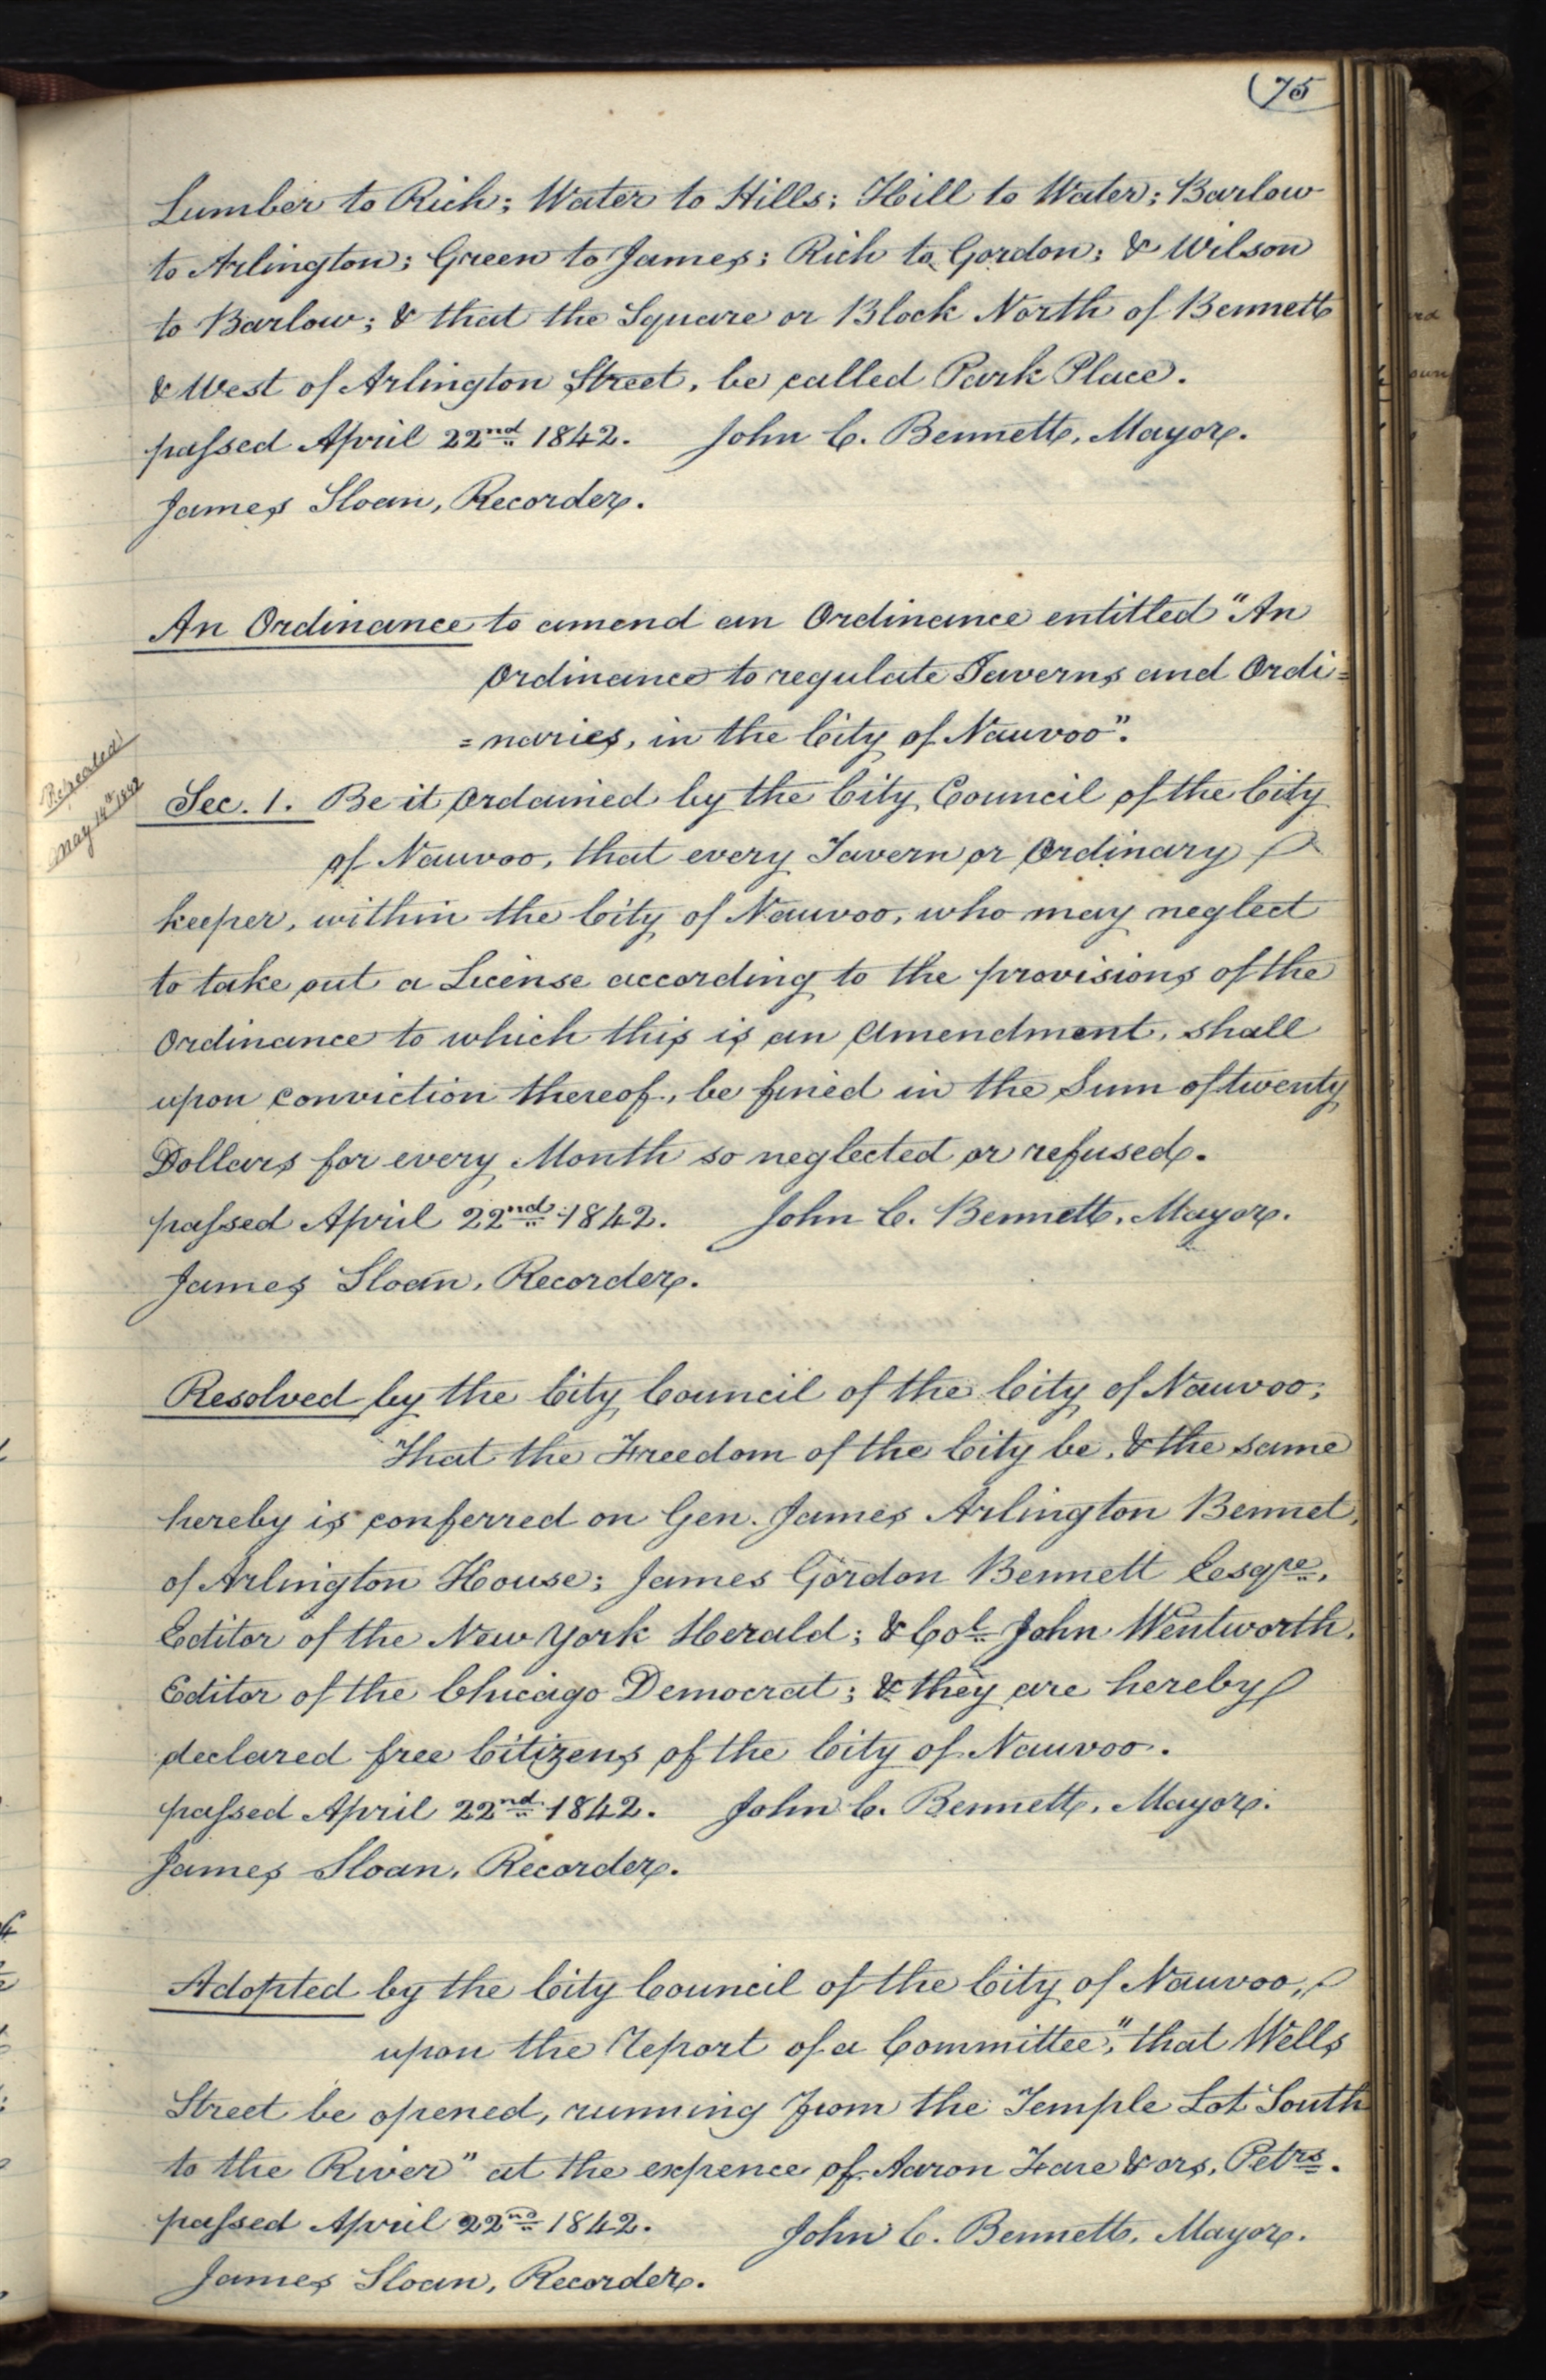 (75
Lumber to Rich; Water to Hills; Hill to Water; Barlow
to Arlington; Green to James; Rich to Gordon; & Wilson
to Barlow; & that the Square or Block North of Bennett
& West of Arlington Street, be called Park Place.
passed April 22nd 1842. John C. Bennett, Mayor.
James Sloan, Recorder.
An Ordinance to amend an Ordinance entitled "An
Ordinance to regulate Taverns and Ordi=
=naries, in the City of Nauvoo".
Repealed
May 14th 1842
Sec. 1. Be it Ordained by the City Council of the City
of Nauvoo, that every Tavern or Ordinary
keeper, within the City of Nauvoo, who may neglect
to take out a License according to the provisions of the
Ordinance to which this is an Amendment, shall
upon conviction thereof, be fined in the Sum of twenty
Dollars for every Month so neglected or refused.
passed April 22nd 1842. John C. Bennett, Mayor.
James Sloan, Recorder.
Resolved by the City Council of the City of Nauvoo;
That the Freedom of the City be, & the same
hereby is conferred on Gen. James Arlington Bennet,
of Arlington House; James Gordon Bennett Esqre,
Editor of the New York Herald; & Col. John Wentworth,
Editor of the Chicago Democrat; & they are hereby
declared free Citizens of the City of Nauvoo.
passed April 22nd 1842. John C. Bennett, Mayor.
James Sloan, Recorder.
Adopted by the City Council of the City of Nauvoo,
upon the Report of a Committee, "that Wells
Street be opened, running from the Temple Lot South
to the River" at the expence of Aaron Fare & ors, Petrs.
passed April 22nd 1842. John C. Bennett, Mayor.
James Sloan, Recorder.